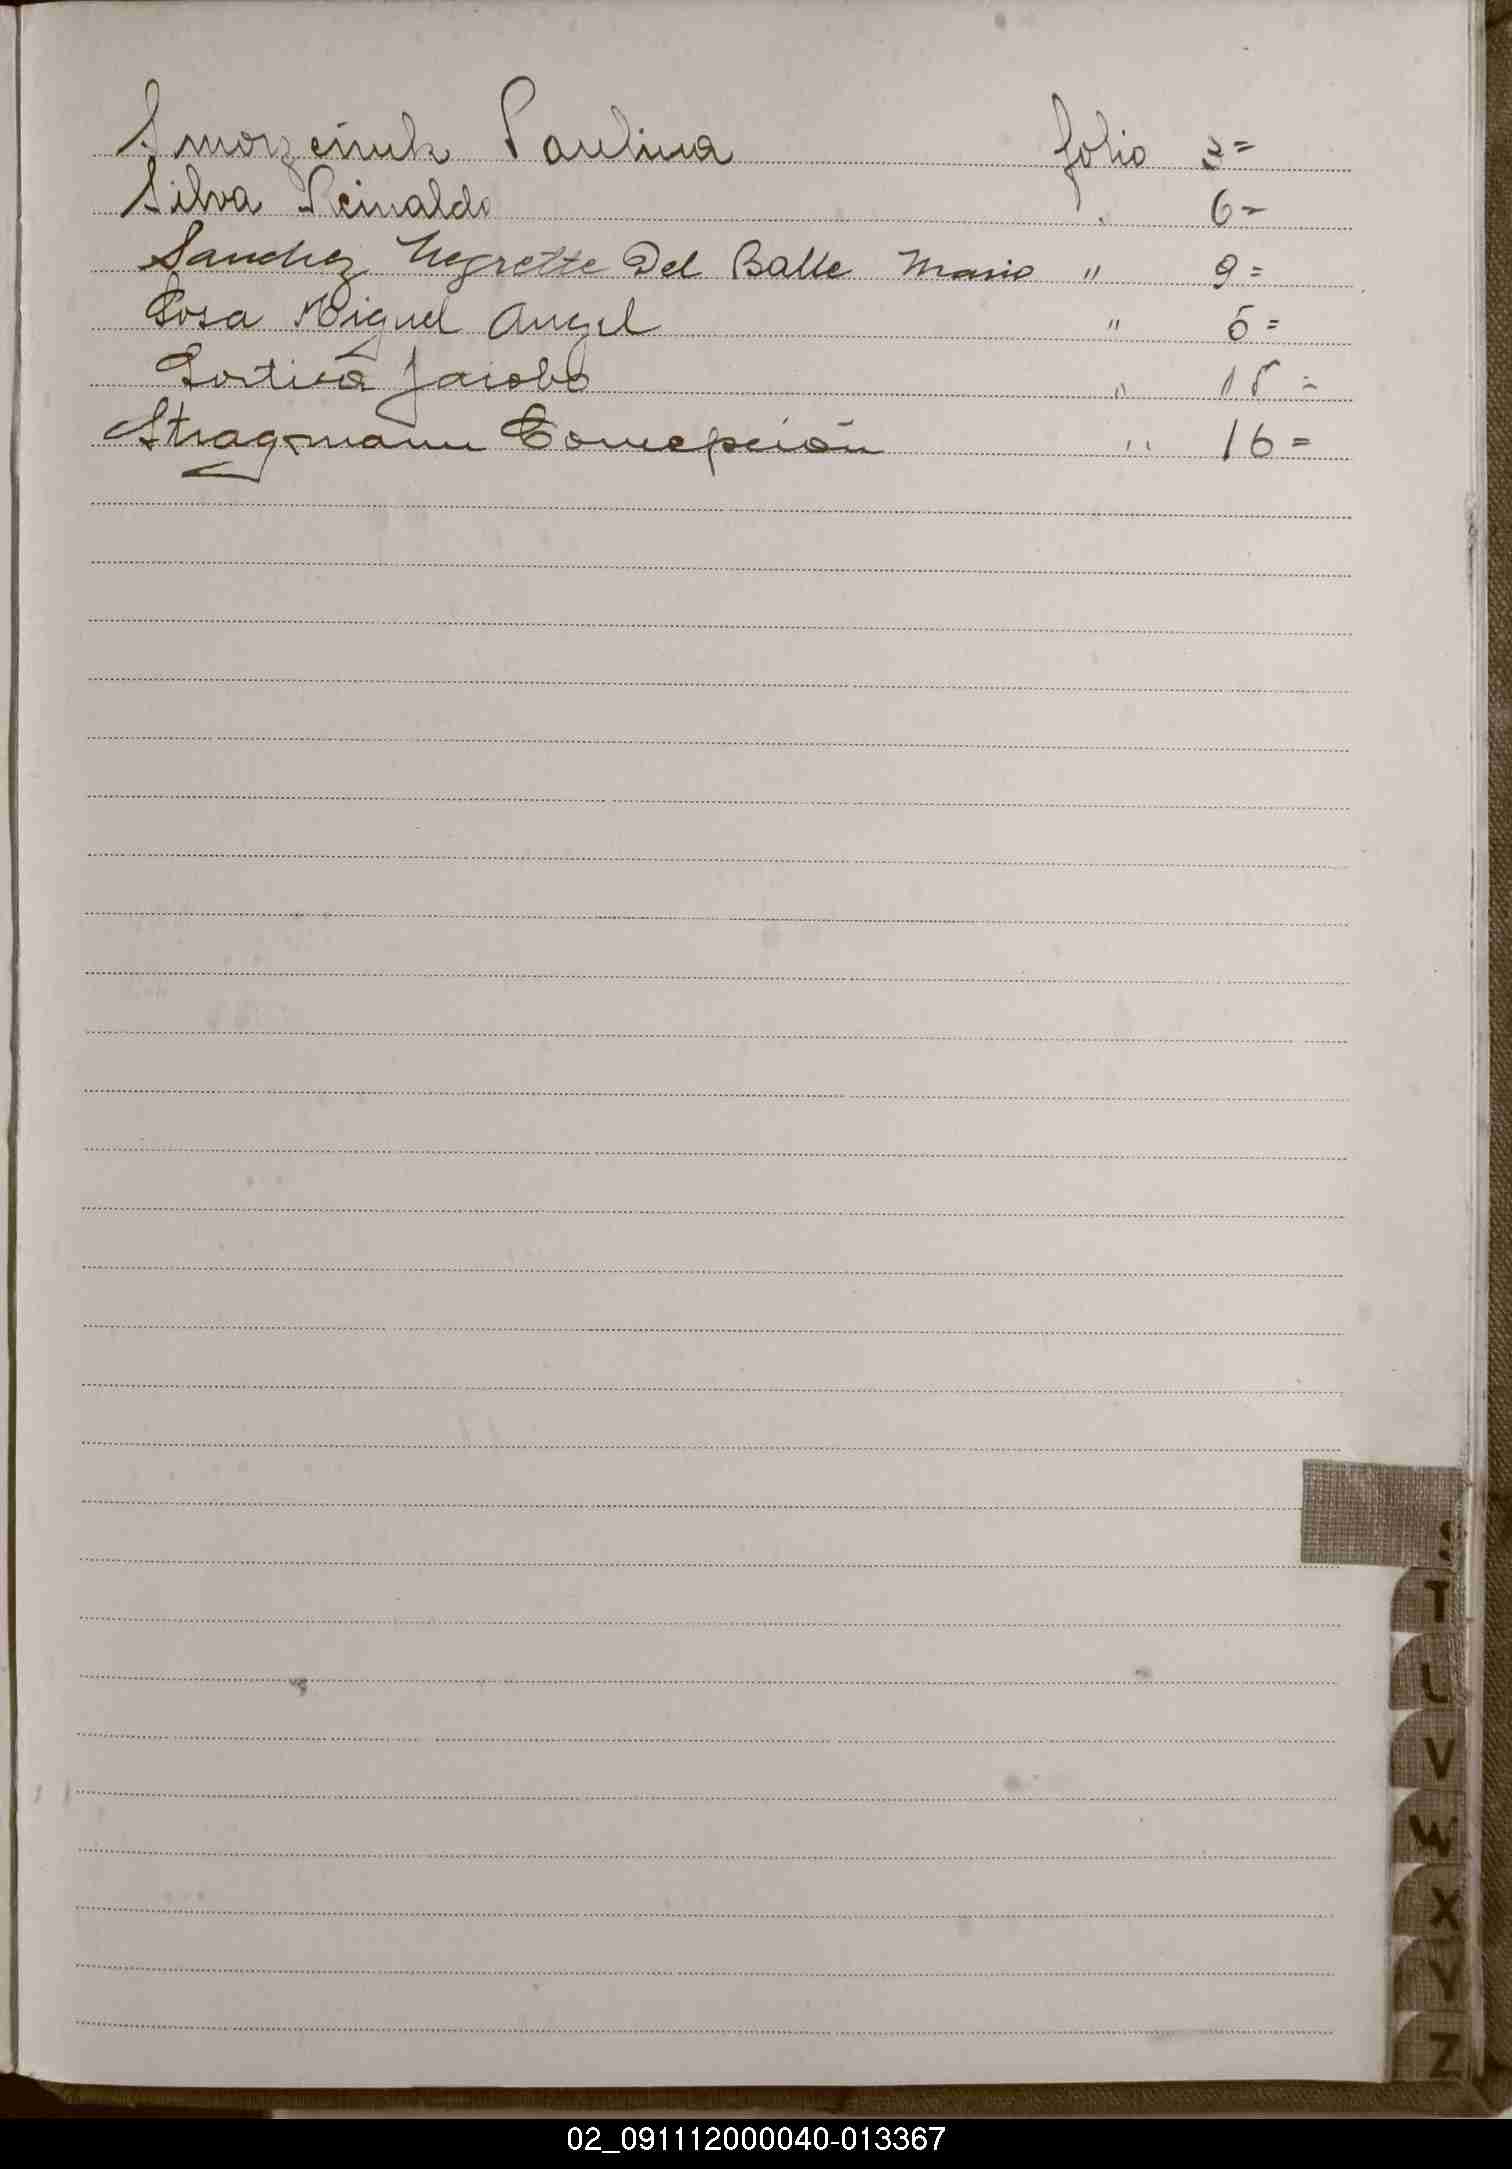 Smorzeniuk Paulina folio 3=
Silva Reinaldo " 6=
Sanchez Negrette Del Balle Mario " 9=
Sosa Miguel Angel " 5=
Jacobo " 15=
Stragmann Concepción " 16=
S
T
U
V
W
X
Y
Z
02_091112000040-013367